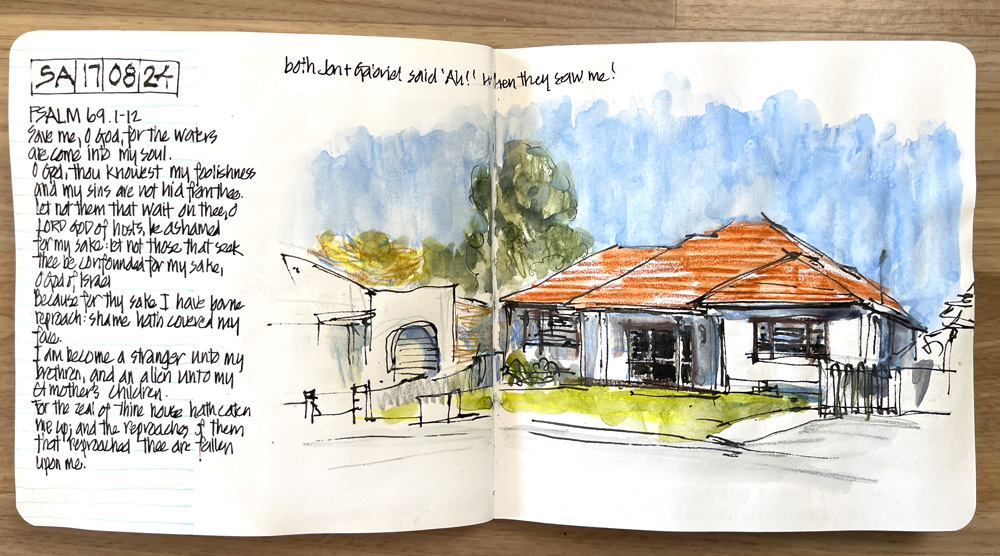 SA 17 08 24
both Jon + Gabriel said 'Ah!' when they saw me!
PSALM 69.1-12
Save me, O God, for the waters
are come into my soul.
O God, thou knowest my foolishness
and my sins are not hid from thee.
Let not them that wait on thee, O
LORD GOD of hosts, be ashamed
for my sake: let not those that seek
thee be confounded for my sake,
O God of Israel
Because for thy sake I have borne
reproach: shame hath covered my
face.
I am become a stranger unto my
brethren, and an alien unto my
mother's children.
For the zeal of thine house hath eaten
me up; and the reproaches of them
that reproached thee are fallen
upon me.